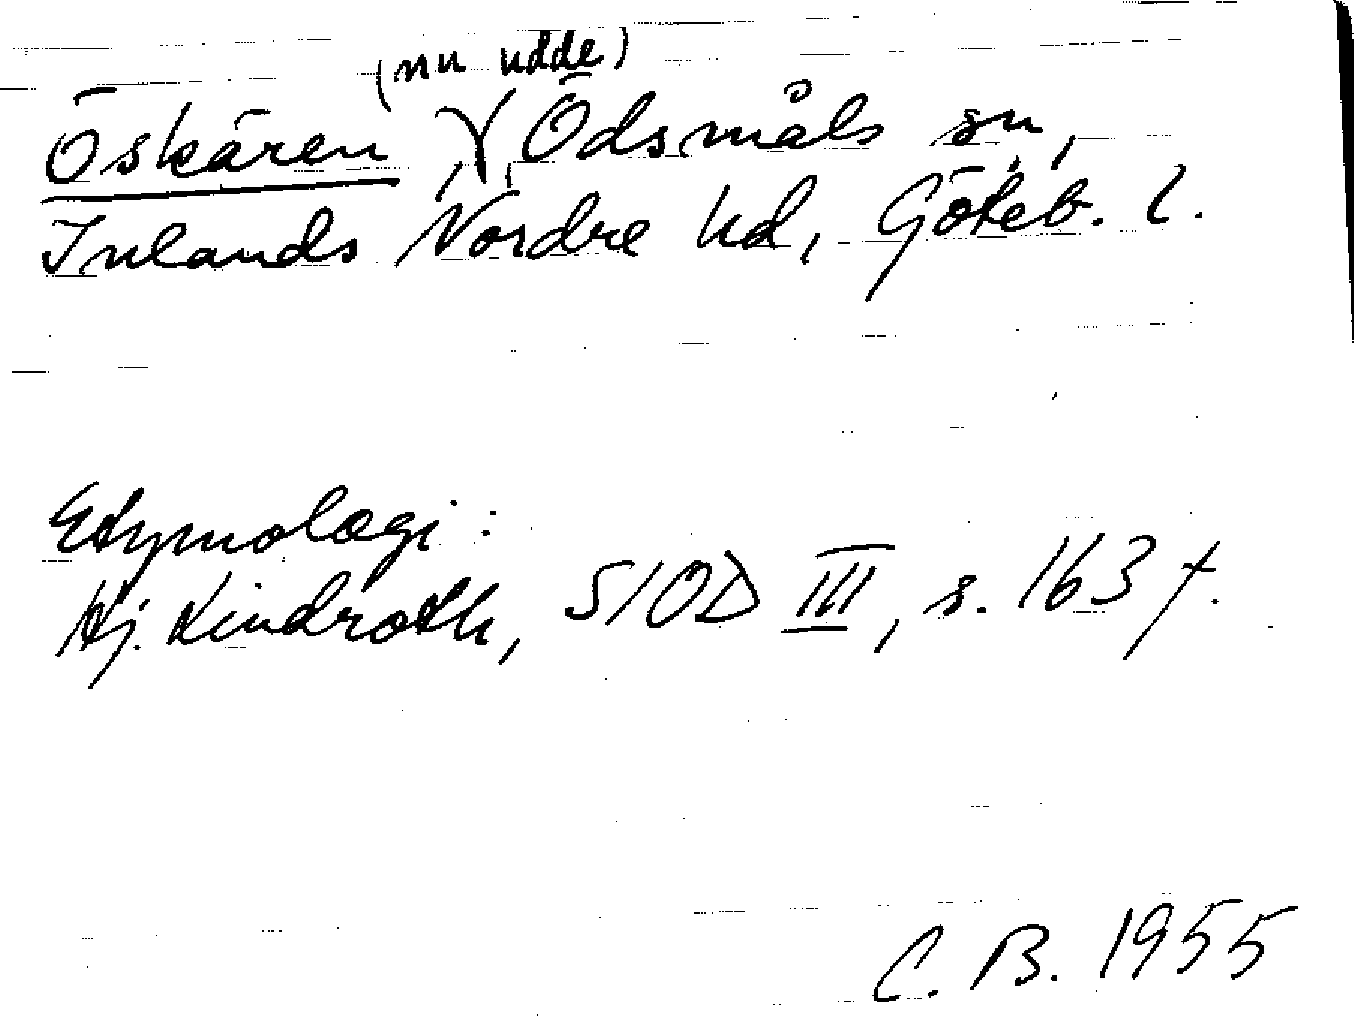 (nu udde)
Öskären Ödsmåls sn,
Inlands Nordre hd, Göteb. l.
Etymologi:
Hj. Lindroth, SIOD III, s. 163 f.
C. B. 1955